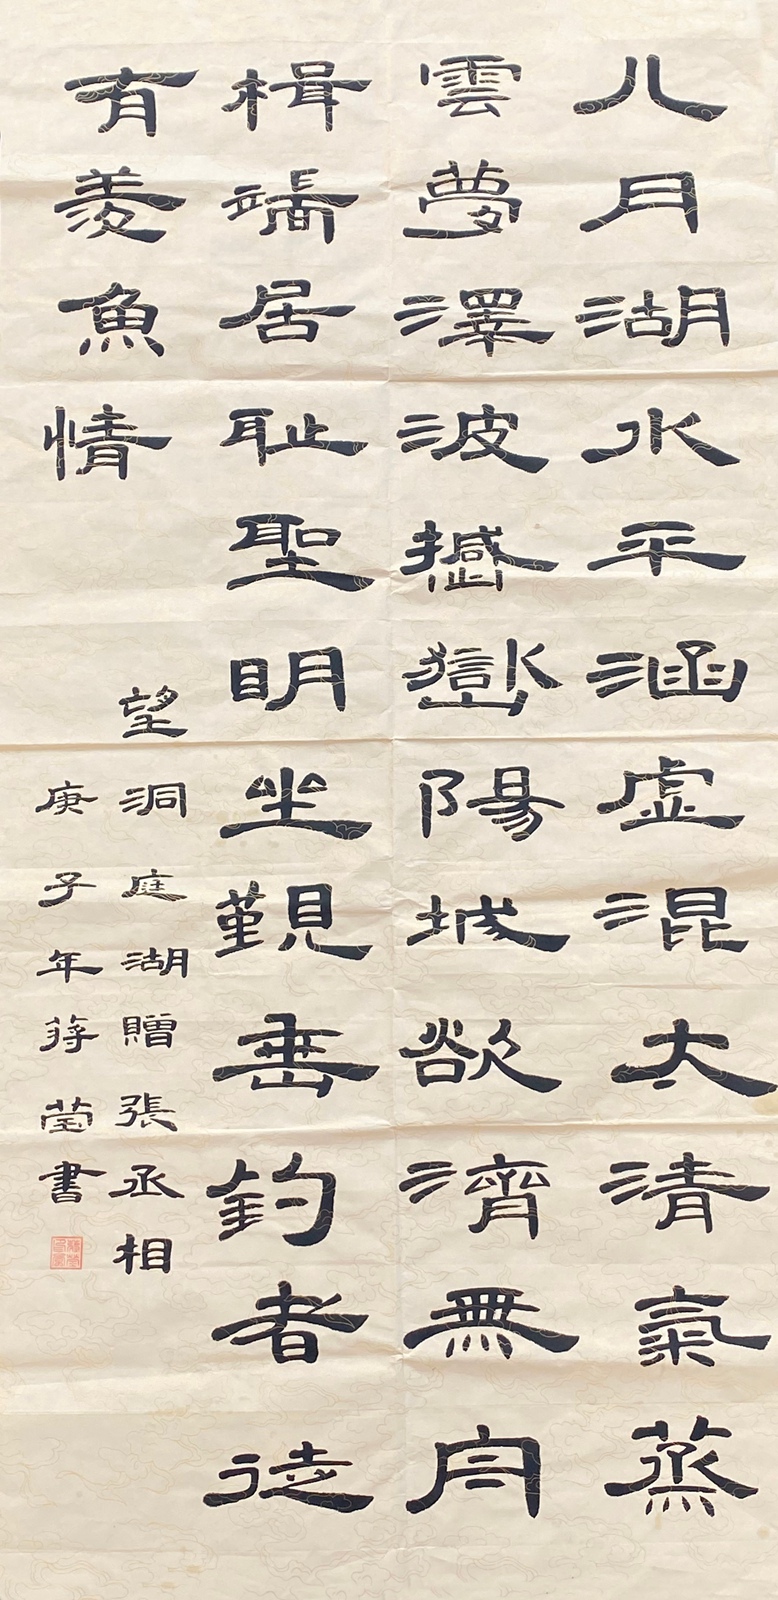 八月湖水平涵虚混太清氣蒸
雲夢澤波撼嶽陽城欲濟無舟
楫端居耻聖明坐觀垂釣者徒
有羨魚情
望洞庭湖贈張丞相
庚子年蔣莹書